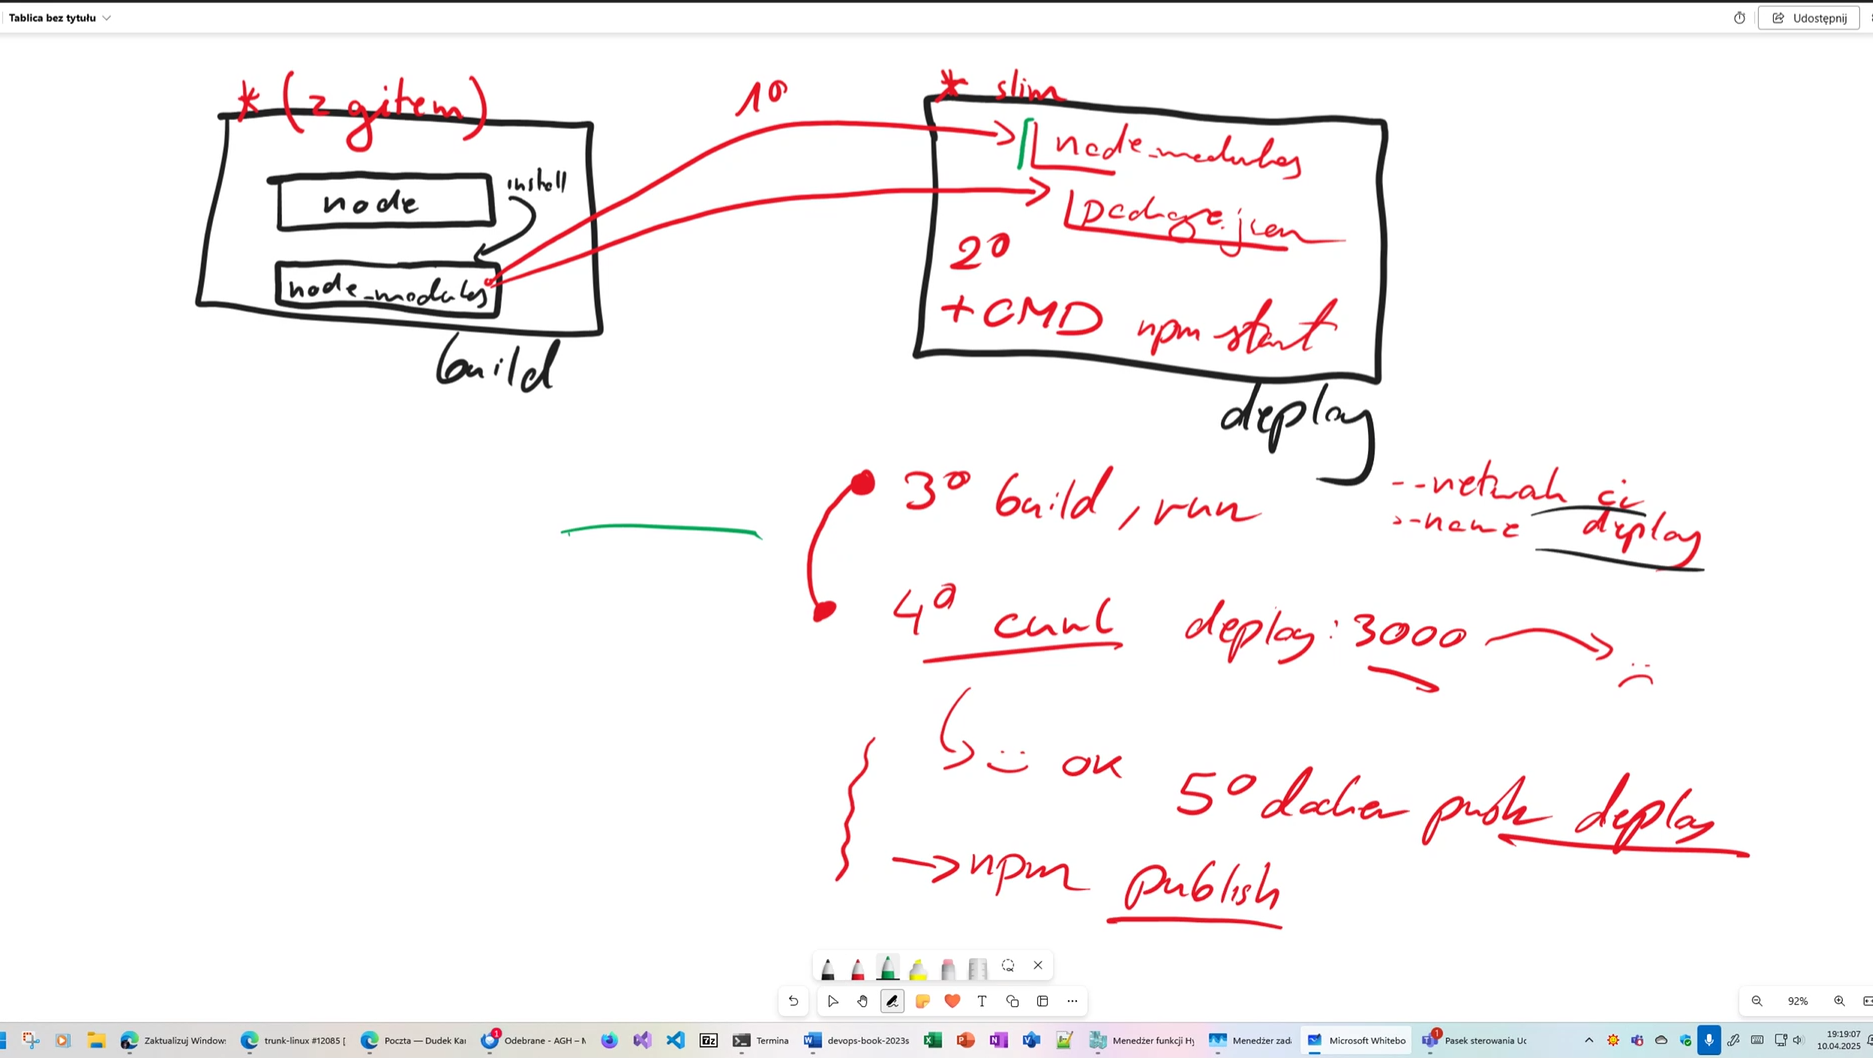 Tablica bez tytułu
Udostępnij
* (z gitem)
1º
* slim
node
install
node_modules
build
node_modules
package.json
2º
+ CMD npm start
deploy
3º build, run
--network ci
--name deploy
4º curl deploy:3000
:(
:) OK
5º docker push deploy
npm publish
92%
Zaktualizuj Windows
trunk-linux #12085 [
Poczta — Dudek Kar
1
Odebrane - AGH – M
Termina
devops-book-2023s
Menedżer funkcji Hy
Menedżer zad
Microsoft Whitebo
1
Pasek sterowania Uc
19:19:07
10.04.2025